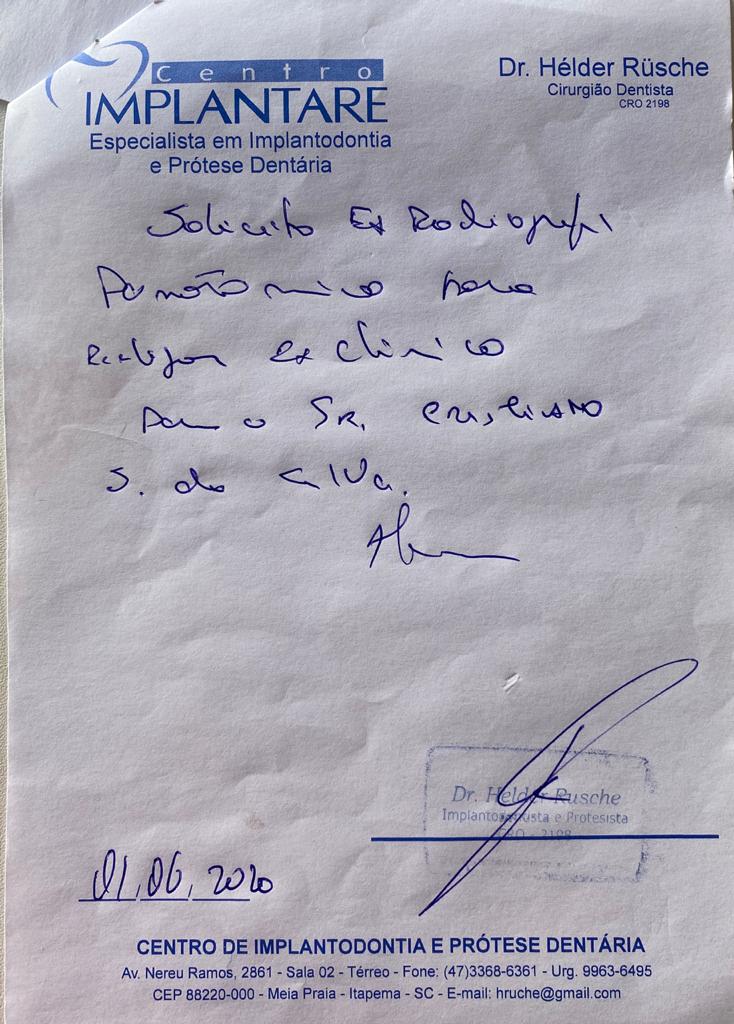 Centro
IMPLANTARE
Especialista em Implantodontia
e Prótese Dentária
Dr. Hélder Rüsche
Cirurgião Dentista
CRO 2198
Solicito Ex Radiografi
Panorâmico para
Realizar ex clínico
Para o SR. CRISTIANO
S. da Silva.
Dr. Helder Rusche
Implantodontista e Protesista
CRO - 2198
01,06,2020
CENTRO DE IMPLANTODONTIA E PRÓTESE DENTÁRIA
Av. Nereu Ramos, 2861 - Sala 02 - Térreo - Fone: (47)3368-6361 - Urg. 9963-6495
CEP 88220-000 - Meia Praia - Itapema - SC - E-mail: hruche@gmail.com